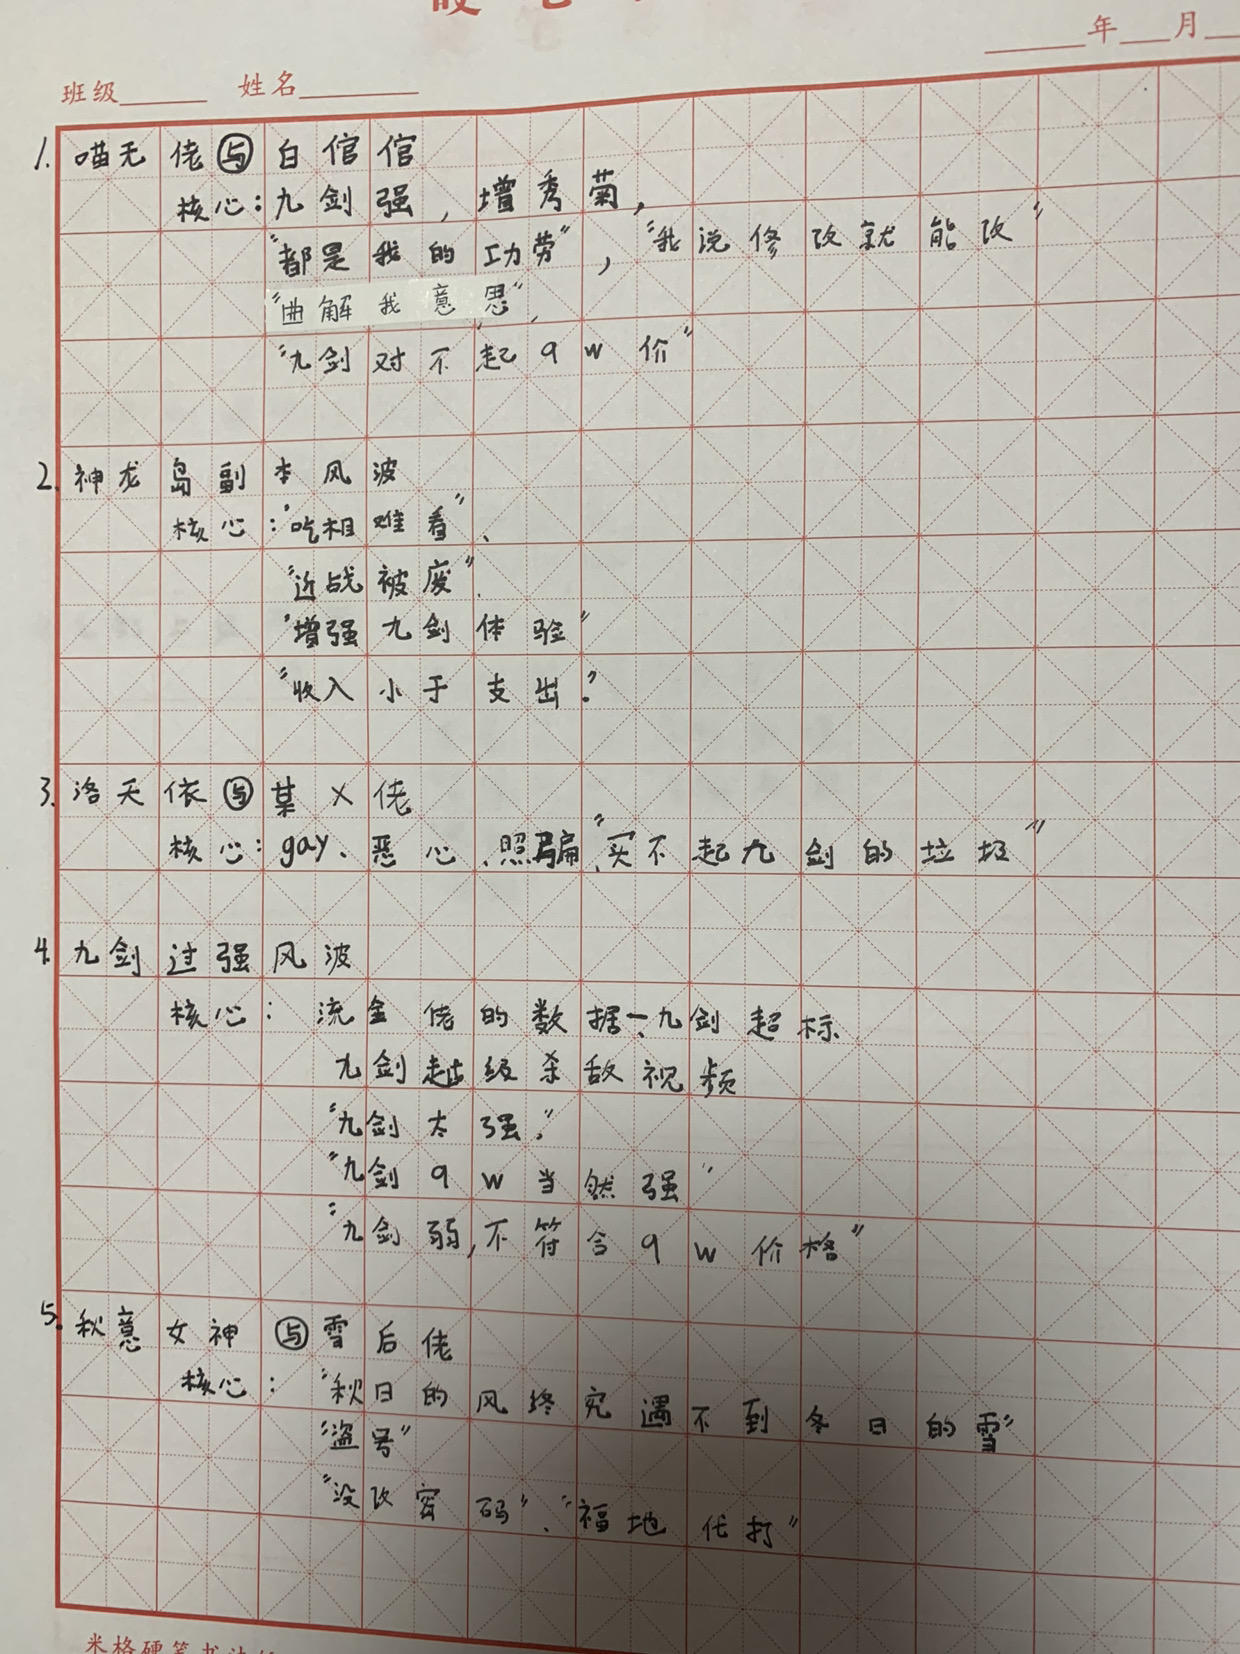 年 月
班级 姓名
1. 喵无佬与白倌倌
核心：九剑强，增秀菊，
"都是我的功劳"，"我说修改就能改"
"曲解我意思"
"九剑对不起9w价"
2. 神龙岛副本风波
核心："吃相难看"、
"近战被废"、
"增强九剑体验"
"收入小于支出."
3. 洛天依与某X佬
核心：gay、恶心、照骗、"买不起九剑的垃圾"
4. 九剑过强风波
核心：流金佬的数据一、九剑超标
九剑越级杀敌视频
"九剑太强."
"九剑9w当然强"
"九剑弱,不符合9w价格"
5. 秋意女神与雪后佬
核心："秋日的风终究遇不到冬日的雪"
"盗号"
"没改密码"、"福地代打"
米格硬笔书法